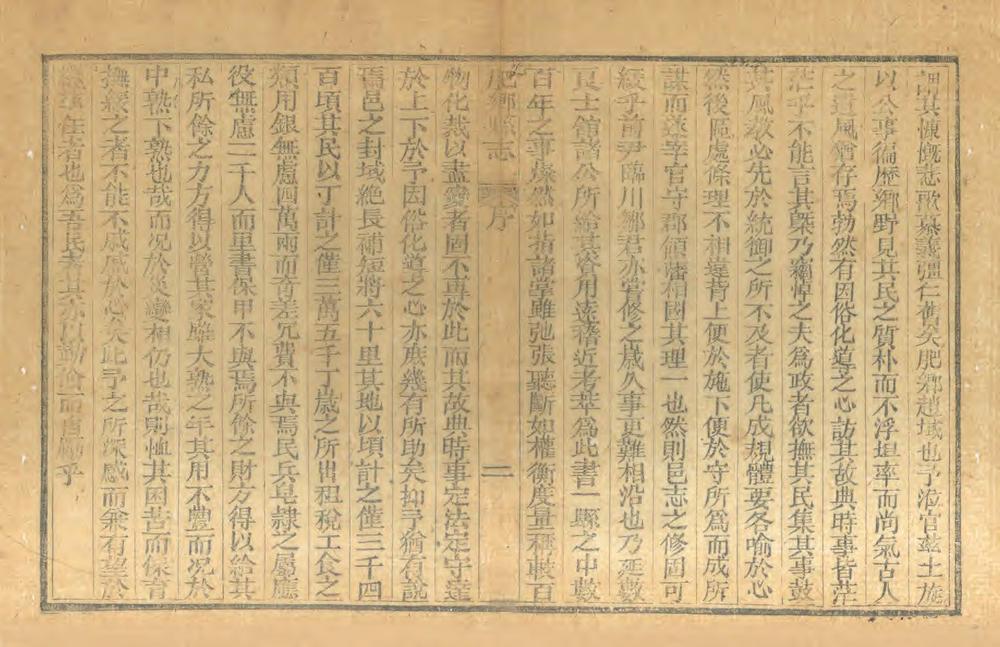 謂其慷慨悲歌慕義彊仁舊矣肥鄉趙域也予涖官兹土施
以公事徧歷鄉野見其民之質朴而不浮坦率而尚氣古人
之遺風猶存焉勃然有因俗化導之心訪其故典時事皆茫
茫乎不能言其槩乃痛悼之夫為政者欲撫其民集其事鼓
其風教必先於統御之所不及者使凡成規體要各喻於心
然後區處條理不相違背上便於施下便於守所為而成所
謀而遂宰官守郡領藩相國其理一也然則邑志之修固可
緩乎前尹臨川鄉君亦嘗修之歲久事更難相沿也乃延數
良士館諸公所給其資用遠稽近考萃為此書一縣之中數
百年之事燦然如指諸掌雖弛張聽斷如權衡度量稱較百
肥鄉縣志 序 二
物化裁以盡變者固不再於此而其故典時事定法定守達
於上下於予因俗化導之心亦庶幾有所助矣抑予猶有說
焉邑之封域絕長補短將六十里其地以頃計之僅三千四
百頃其民以丁計之僅三萬五千丁歲之所出租稅工食之
類用銀無慮四萬兩而奇差冗費不與焉民兵皂隸之屬應
役無慮二千人而里書保甲不與焉所餘之財方得以給其
私所餘之力方得以營其家雖大熟之年其用不豐而況於
中熟下熟也哉而況於災變相仍也哉則恤其困苦而保育
撫綏之者不能不戚戚於心矣此予之所深感而兼有望於
繼是任者也為吾民者其亦以勤儉而自勵乎